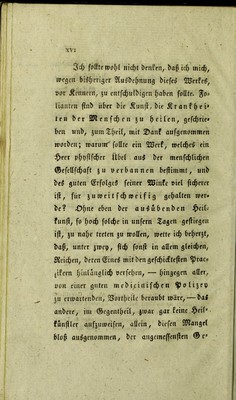 XVI
Ich sollte wohl nicht denken, daß ich mich,
wegen bisheriger Ausdehnung dieses Werkes,
vor Kennern, zu entschuldigen haben sollte. Fo-
lianten sind über die Kunst, die Krankhei-
ten der Menschen zu heilen, geschrie-
ben und, zum Theil, mit Dank aufgenommen
worden; warum sollte ein Werk, welches ein
Heer physischer Übel aus der menschlichen
Gesellschaft zu verbannen bestimmt, und
des guten Erfolges seiner Winke viel sicherer
ist, für zuweitschweifig gehalten wer-
de? Ohne eben der ausübenden Heil-
kunst, so hoch solche in unsern Tagen gestiegen
ist, zu nahe treten zu wollen, wette ich beherzt,
daß, unter zwey, sich sonst in allem gleichen,
Reichen, deren Eines mit den geschicktesten Prac-
zikern hinlänglich versehen, — hingegen aller,
von einer guten medicinischen Polizey
zu erwartenden, Vortheile beraubt wäre, — das
andere, im Gegentheil, zwar gar keine Heil-
künstler aufzuweisen, allein, diesen Mangel
bloß ausgenommen, der angemessensten Ge-